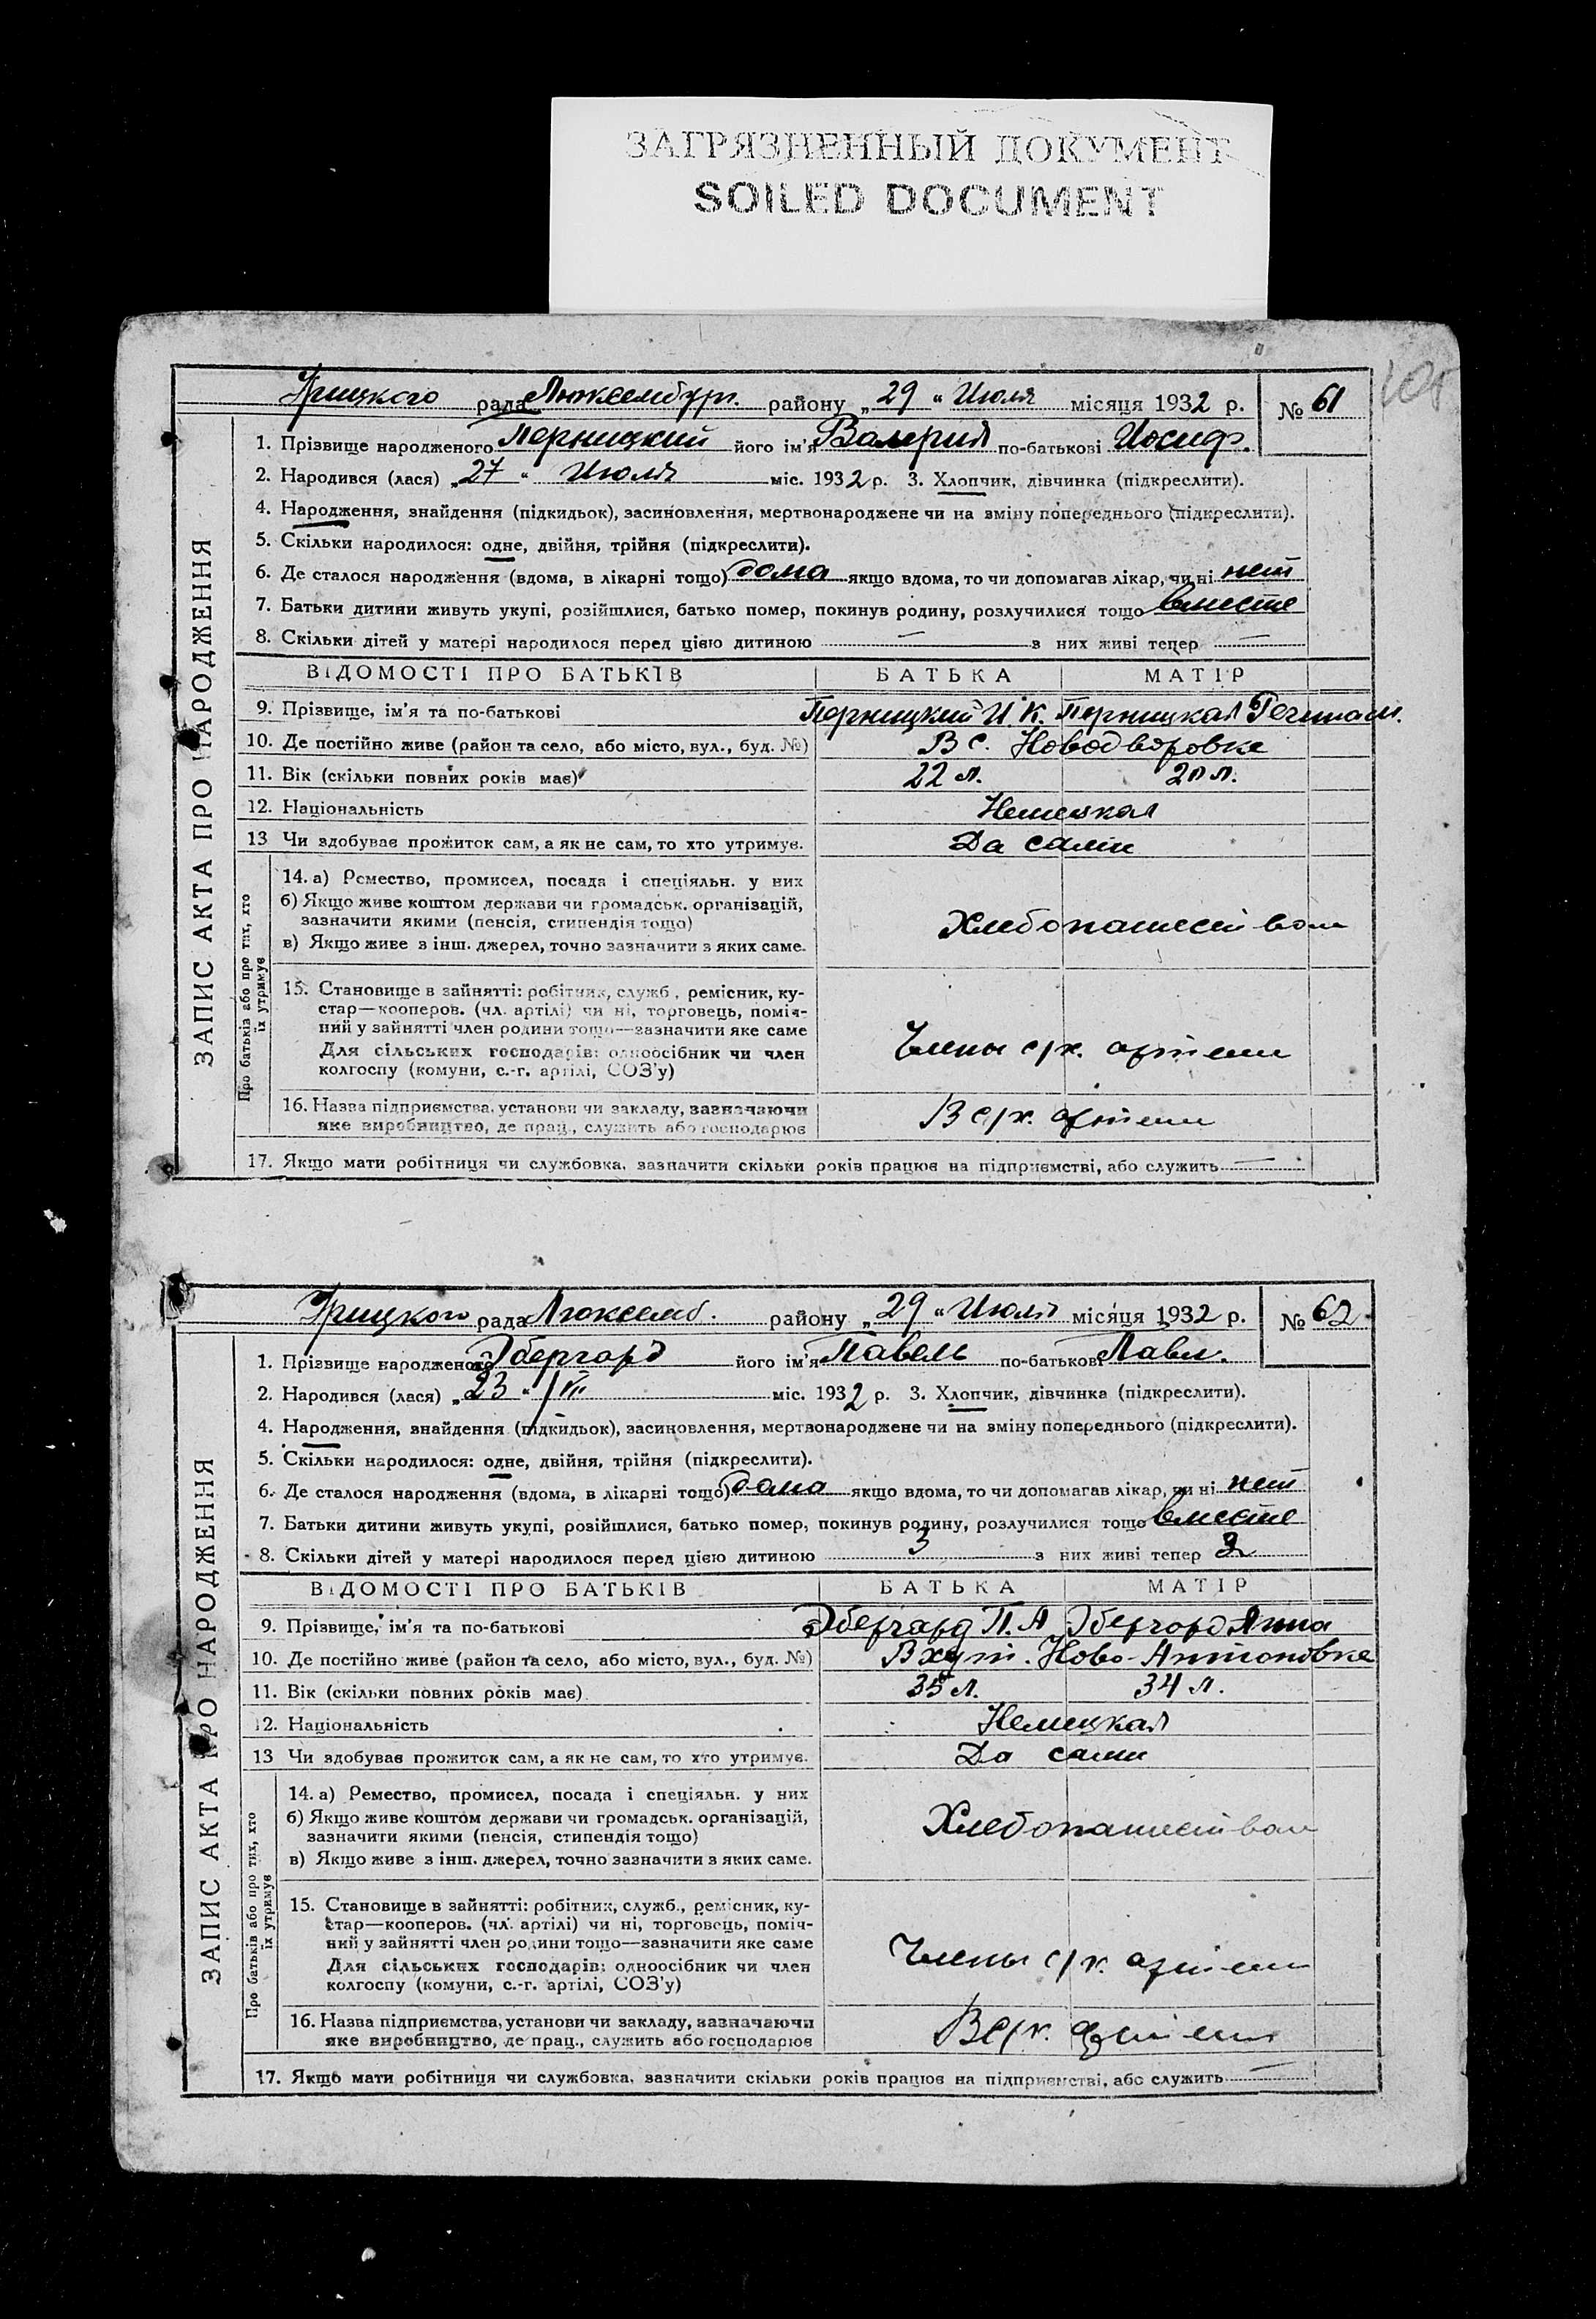 ЗАГРЯЗНЕННЫЙ ДОКУМЕНТ
SOILED DOCUMENT
ЗАПИС АКТА ПРО НАРОДЖЕННЯ
рада Люксембург. району „29“ Июля місяця 1932 р. № 61
1. Прізвище народженого Перницкий його ім'я Валерий по-батькові Иосиф.
2. Народився (лася) „27“ Июля міс. 1932 р. 3. Хлопчик, дівчинка (підкреслити).
4. Народження, знайдення (підкидьок), засиновлення, мертвонароджене чи на зміну попереднього (підкреслити).
5. Скільки народилося: одне, двійня, трійня (підкреслити).
6. Де сталося народження (вдома, в лікарні тощо) дома якщо вдома, то чи допомагав лікар, чи ні нет
7. Батьки дитини живуть укупі, розійшлися, батько помер, покинув родину, розлучилися тощо вместе
8. Скільки дітей у матері народилося перед цією дитиною — з них живі тепер —
ВІДОМОСТІ ПРО БАТЬКІВ БАТЬКА МАТІР
9. Прізвище, ім'я та по-батькові Перницкий И. К. Перницкая
10. Де постійно живе (район та село, або місто, вул., буд. №) В с. Новодворовке
11. Вік (скільки повних років має) 22 л. 20 л.
12. Національність Немецкая
13 Чи здобуває прожиток сам, а як не сам, то хто утримує. Да сами
Про батьків або про тих, хто
їх утримує
14. а) Ремество, промисел, посада і спеціяльн. у них
б) Якщо живе коштом держави чи громадськ. організацій,
зазначити якими (пенсія, стипендія тощо) Хлебопашеством
в) Якщо живе з інш. джерел, точно зазначити з яких саме.
15. Становище в зайнятті: робітник, служб., ремісник, ку-
стар—кооперов. (чл. артілі) чи ні, торговець, поміч-
ний у зайнятті член родини тощо—зазначити яке саме
Для сільських господарів: одноосібник чи член Члены с/х. артели
колгоспу (комуни, с.-г. артілі, СОЗ'у)
16. Назва підприємства, установи чи закладу, зазначаючи В с/х. артели
яке виробництво, де прац., служить або господарює
17. Якщо мати робітниця чи службовка, зазначити скільки років працює на підприємстві, або служить —
ЗАПИС АКТА ПРО НАРОДЖЕННЯ
рада Люксемб. району „29“ Июля місяця 1932 р. № 62
1. Прізвище народженого Эбергард його ім'я Павель по-батькові Павл.
2. Народився (лася) „23“ /VII міс. 1932 р. 3. Хлопчик, дівчинка (підкреслити).
4. Народження, знайдення (підкидьок), засиновлення, мертвонароджене чи на зміну попереднього (підкреслити).
5. Скільки народилося: одне, двійня, трійня (підкреслити).
6. Де сталося народження (вдома, в лікарні тощо) дома якщо вдома, то чи допомагав лікар, чи ні нет
7. Батьки дитини живуть укупі, розійшлися, батько помер, покинув родину, розлучилися тощо вместе
8. Скільки дітей у матері народилося перед цією дитиною 3 з них живі тепер
ВІДОМОСТІ ПРО БАТЬКІВ БАТЬКА МАТІР
9. Прізвище, ім'я та по-батькові Эбергард П. А Эбергард Анна
10. Де постійно живе (район та село, або місто, вул., буд. №) В хут. Ново-Антоновке
11. Вік (скільки повних років має) 35 л. 34 л.
12. Національність Немецкая
13 Чи здобуває прожиток сам, а як не сам, то хто утримує. Да сами
Про батьків або про тих, хто
їх утримує
14. а) Ремество, промисел, посада і спеціяльн. у них
б) Якщо живе коштом держави чи громадськ. організацій, Хлебопашеством
зазначити якими (пенсія, стипендія тощо)
в) Якщо живе з інш. джерел, точно зазначити з яких саме.
15. Становище в зайнятті: робітник, служб., ремісник, ку-
стар—кооперов. (чл. артілі) чи ні, торговець, поміч-
ний у зайнятті член родини тощо—зазначити яке саме
Для сільських господарів: одноосібник чи член Члены с/х. артели
колгоспу (комуни, с.-г. артілі, СОЗ'у)
16. Назва підприємства, установи чи закладу, зазначаючи В с/х. артели
яке виробництво, де прац., служить або господарює
17. Якщо мати робітниця чи службовка, зазначити скільки років працює на підприємстві, або служить —